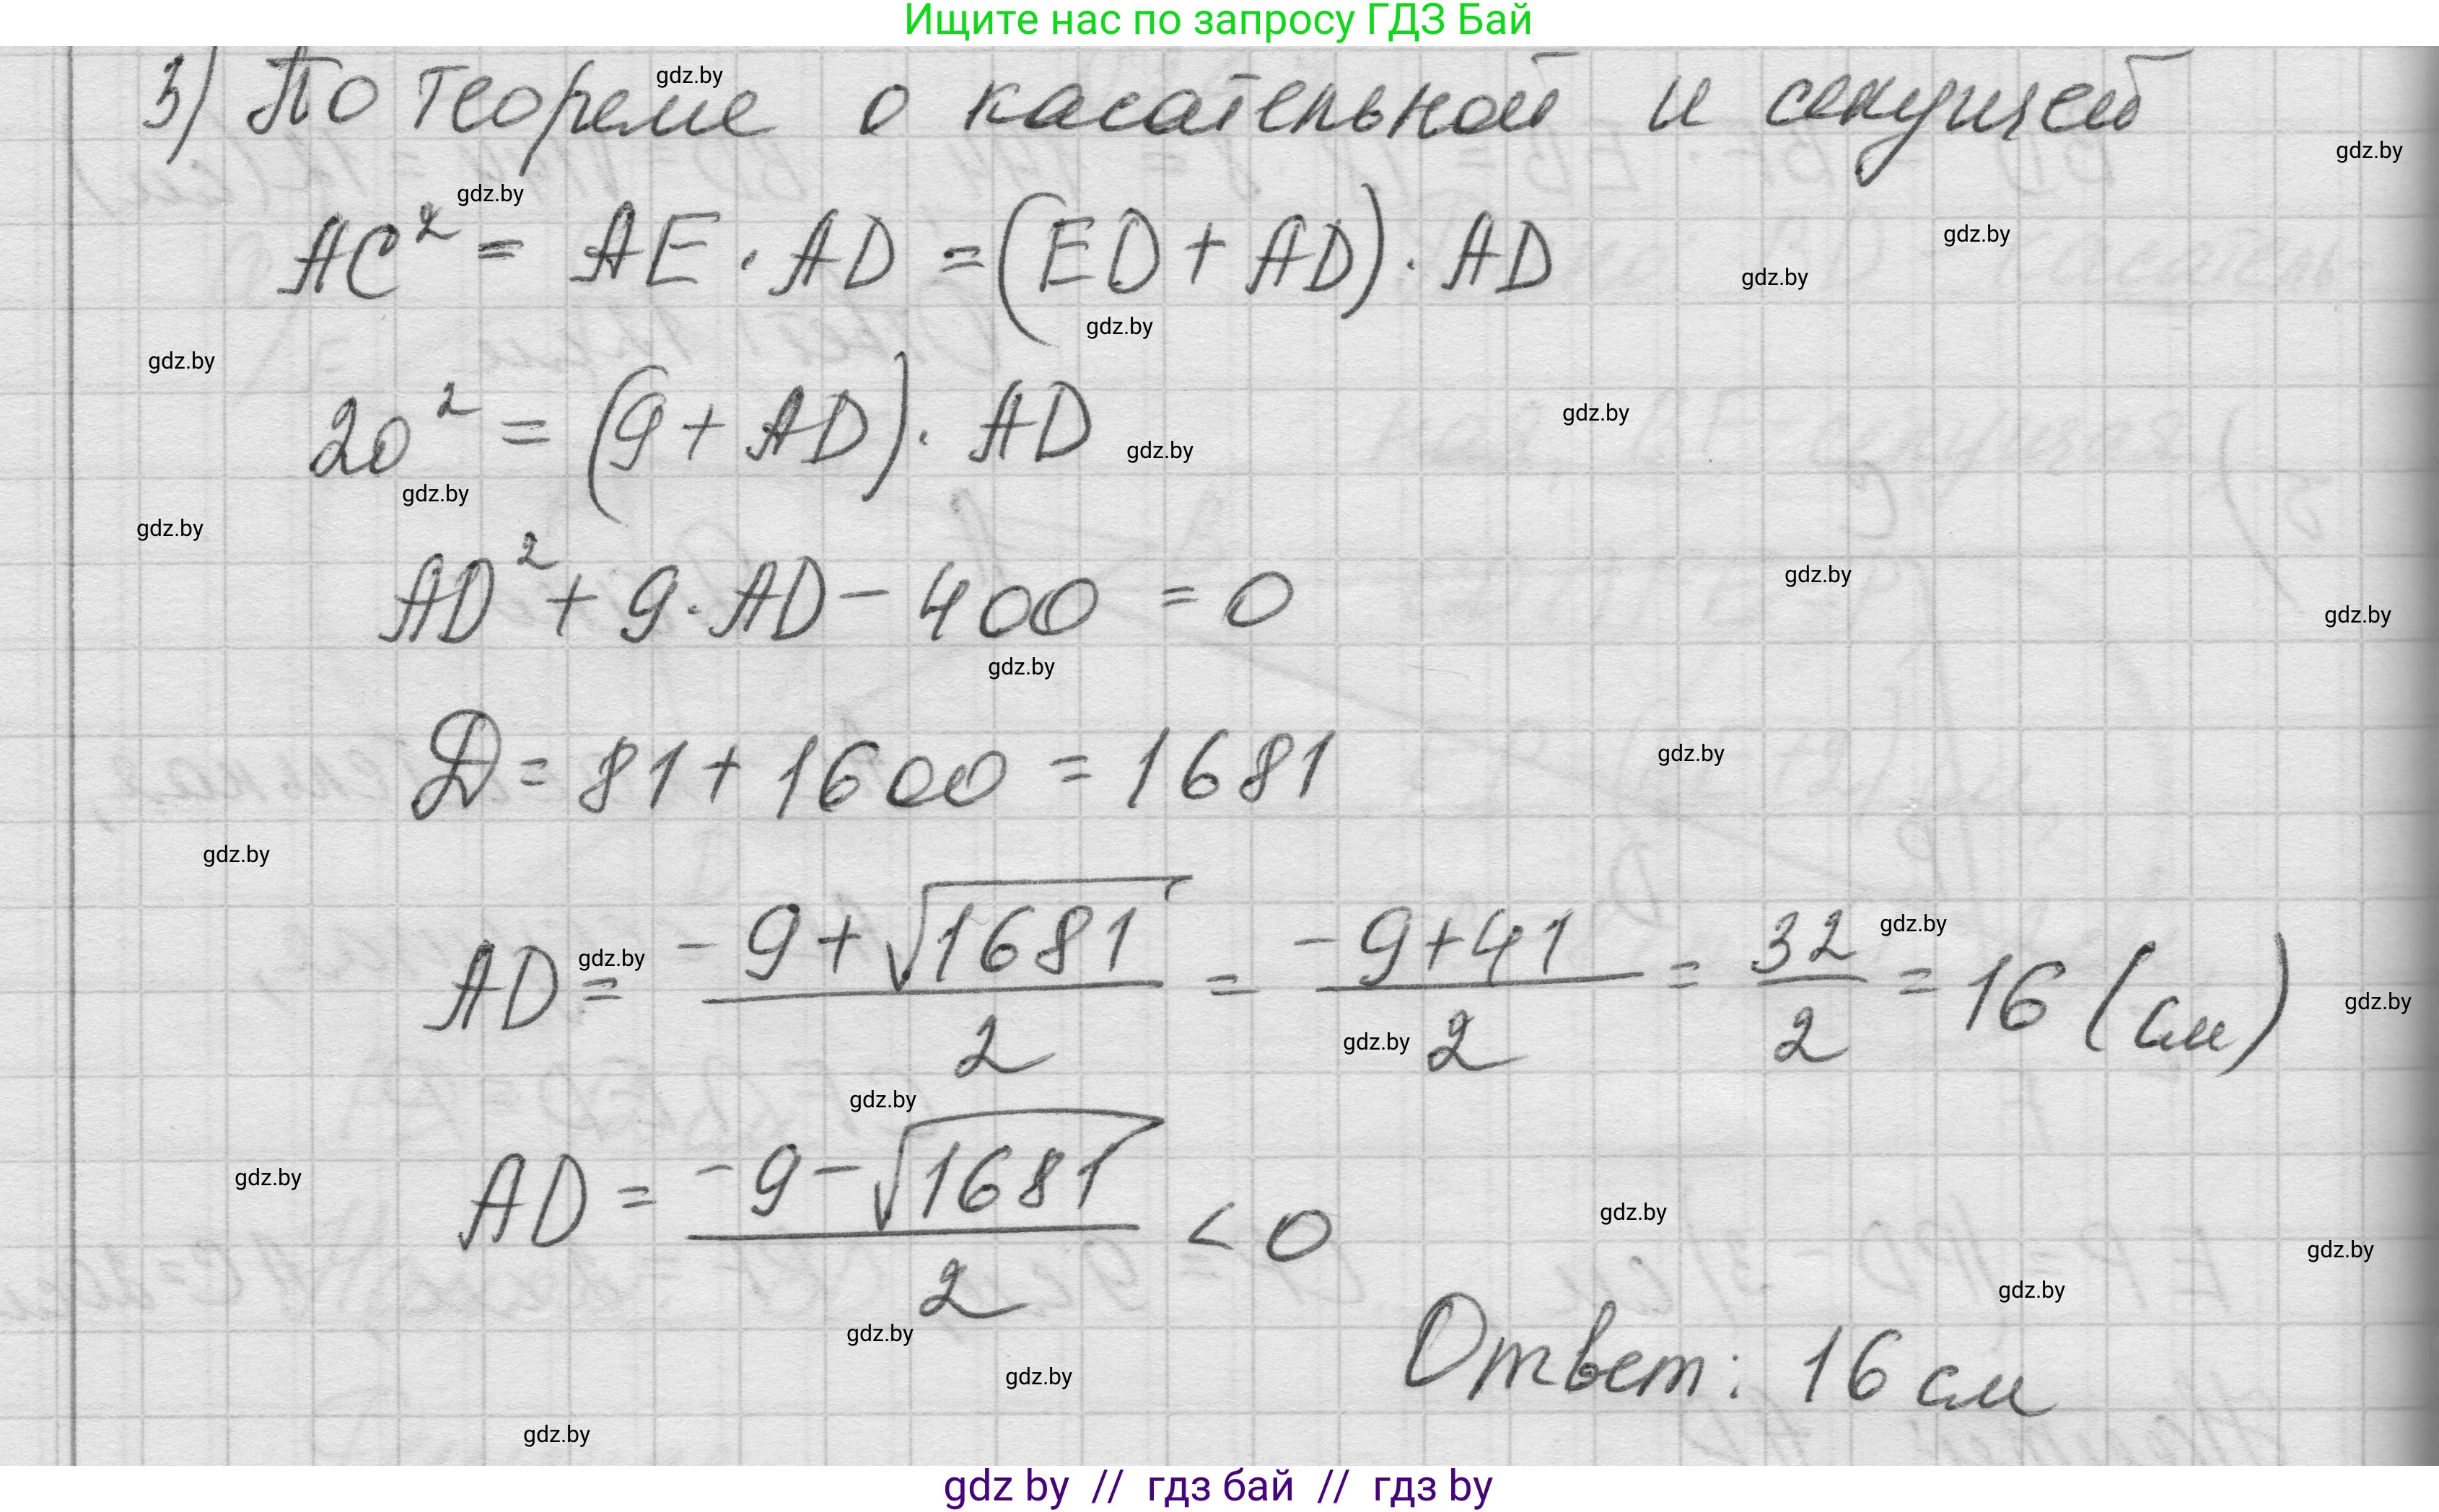 Ищите нас по запросу ГДЗ Бай
3) По теореме о касательной и секущей
gdz.by
gdz.by
gdz.by
AC² = AE · AD = (ED + AD) · AD
gdz.by
gdz.by
gdz.by
gdz.by
20² = (9 + AD) · AD
gdz.by
gdz.by
gdz.by
gdz.by
AD² + 9 · AD − 400 = 0
gdz.by
gdz.by
gdz.by
Д = 81 + 1600 = 1681
gdz.by
gdz.by
AD = (−9 + √1681) / 2 = (−9 + 41) / 2 = 32 / 2 = 16 (см)
gdz.by
gdz.by
gdz.by
gdz.by
gdz.by
AD = (−9 − √1681) / 2 < 0
gdz.by
gdz.by
gdz.by
gdz.by
gdz.by
Ответ: 16 см
gdz.by
gdz.by
gdz by // гдз бай // гдз by